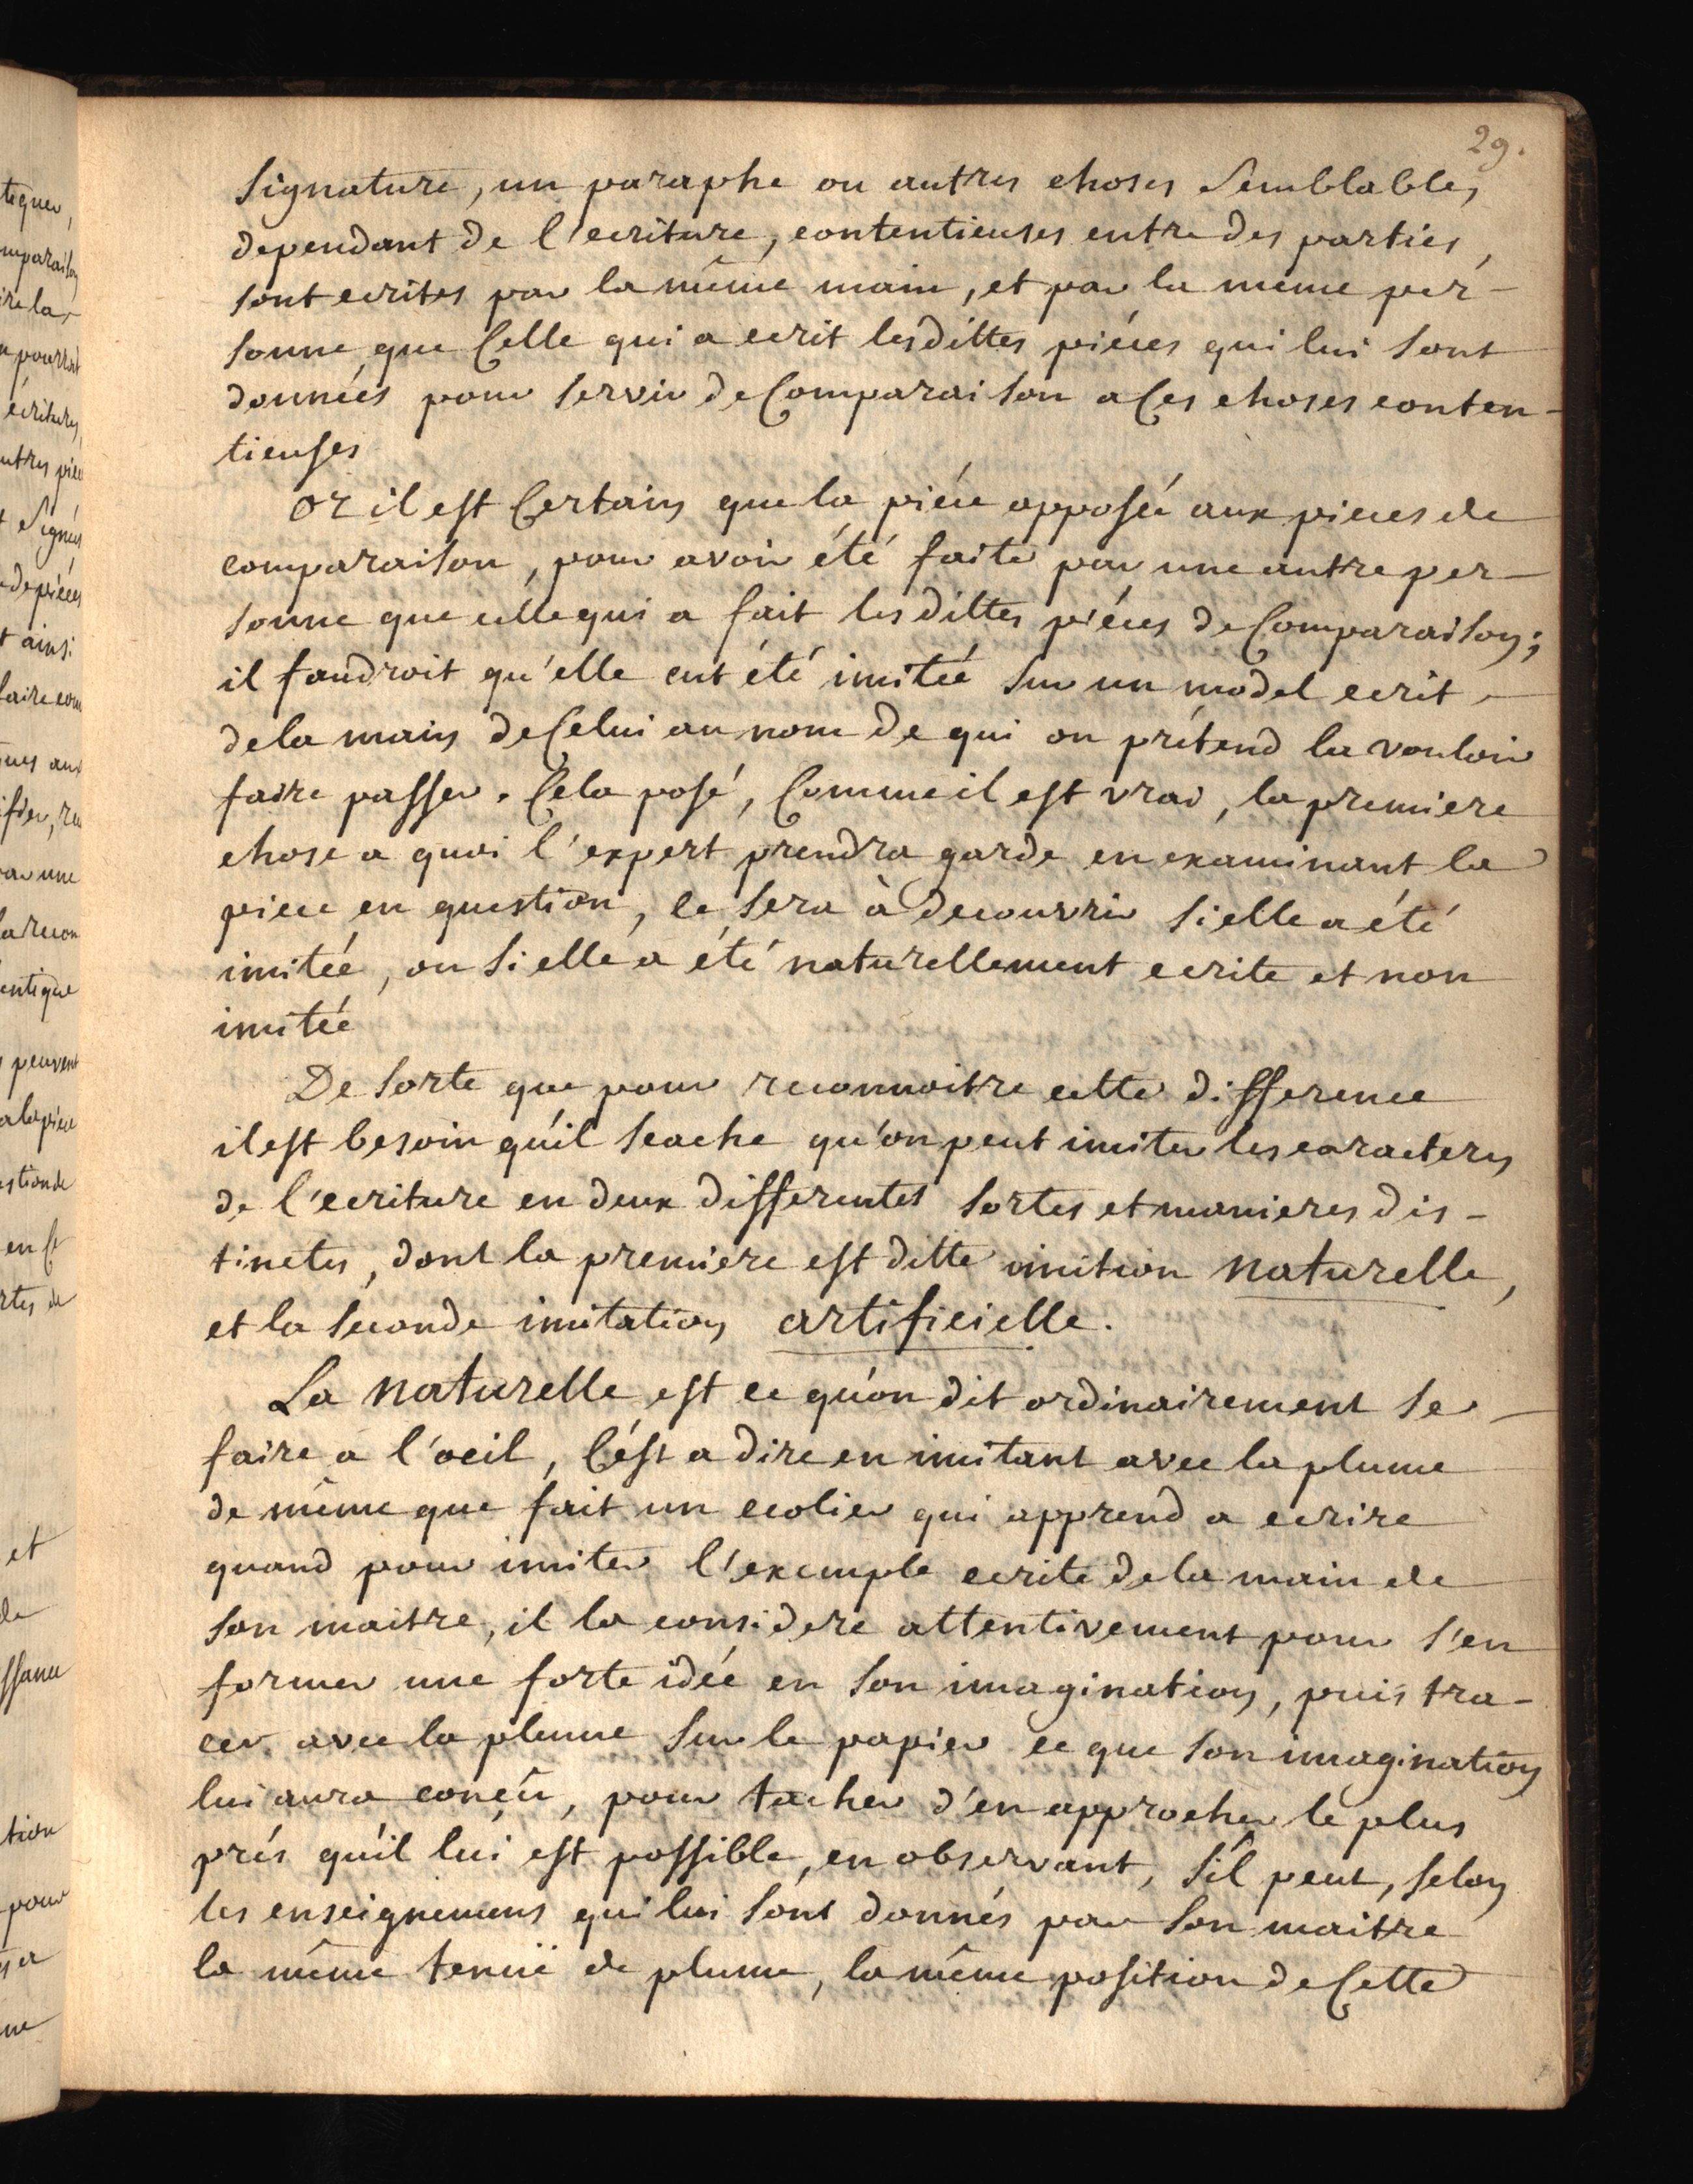 29.
Signature, un paraphe ou autres choses Semblables
dependant de l'ecriture, contentieuses entre des parties,
sont ecrites par la même main, et par la meme per-
sonne que Celle qui a ecrit lesdittes piéces qui lui sont
données pour servir de Comparaison a Ces choses conten-
tieuses
Or il est Certain que la piéce apposée aux pieces de
comparaison, pour avoir été faite par une autre per-
sonne que celle qui a fait les dittes piéces de Comparaison;
il faudroit qu'elle eut été imitée sur un model ecrit
de la main de Celui au nom de qui on prétend la vouloir
faire passer. Cela posé, Comme il est vrai, la premiere
chose a quoi l'expert prendra garde en examinant la
piece en question, ce sera à decouvrir si elle a été
imitée, ou si elle a été naturellement ecrite et non
imitée
De sorte que pour reconnoitre cette difference
il est besoin qu'il scache qu'on peut imiter les caracteres
de l'ecriture en deux differentes sortes et manieres dis-
tinctes, dont la premiere est ditte imition naturelle,
et la seconde imitation artificielle.
La naturelle est ce qu'on dit ordinairement se
faire a l'oeil, C'est a dire en imitant avec la plume
de même que fait un ecolier qui apprend a ecrire
quand pour imiter l'exemple ecrite de la main de
son maitre, il la considere attentivement pour s'en
former une forte idée en son imagination, puis tra-
cer avec la plume sur le papier ce que son imagination
lui aura conçû, pour tacher d'en approcher le plus
prés qu'il lui est possible, en observant, s'il peut, selon
les enseignemens qui lui sont donnés par son maitre
la même tenuë de plume, la même position de Cette